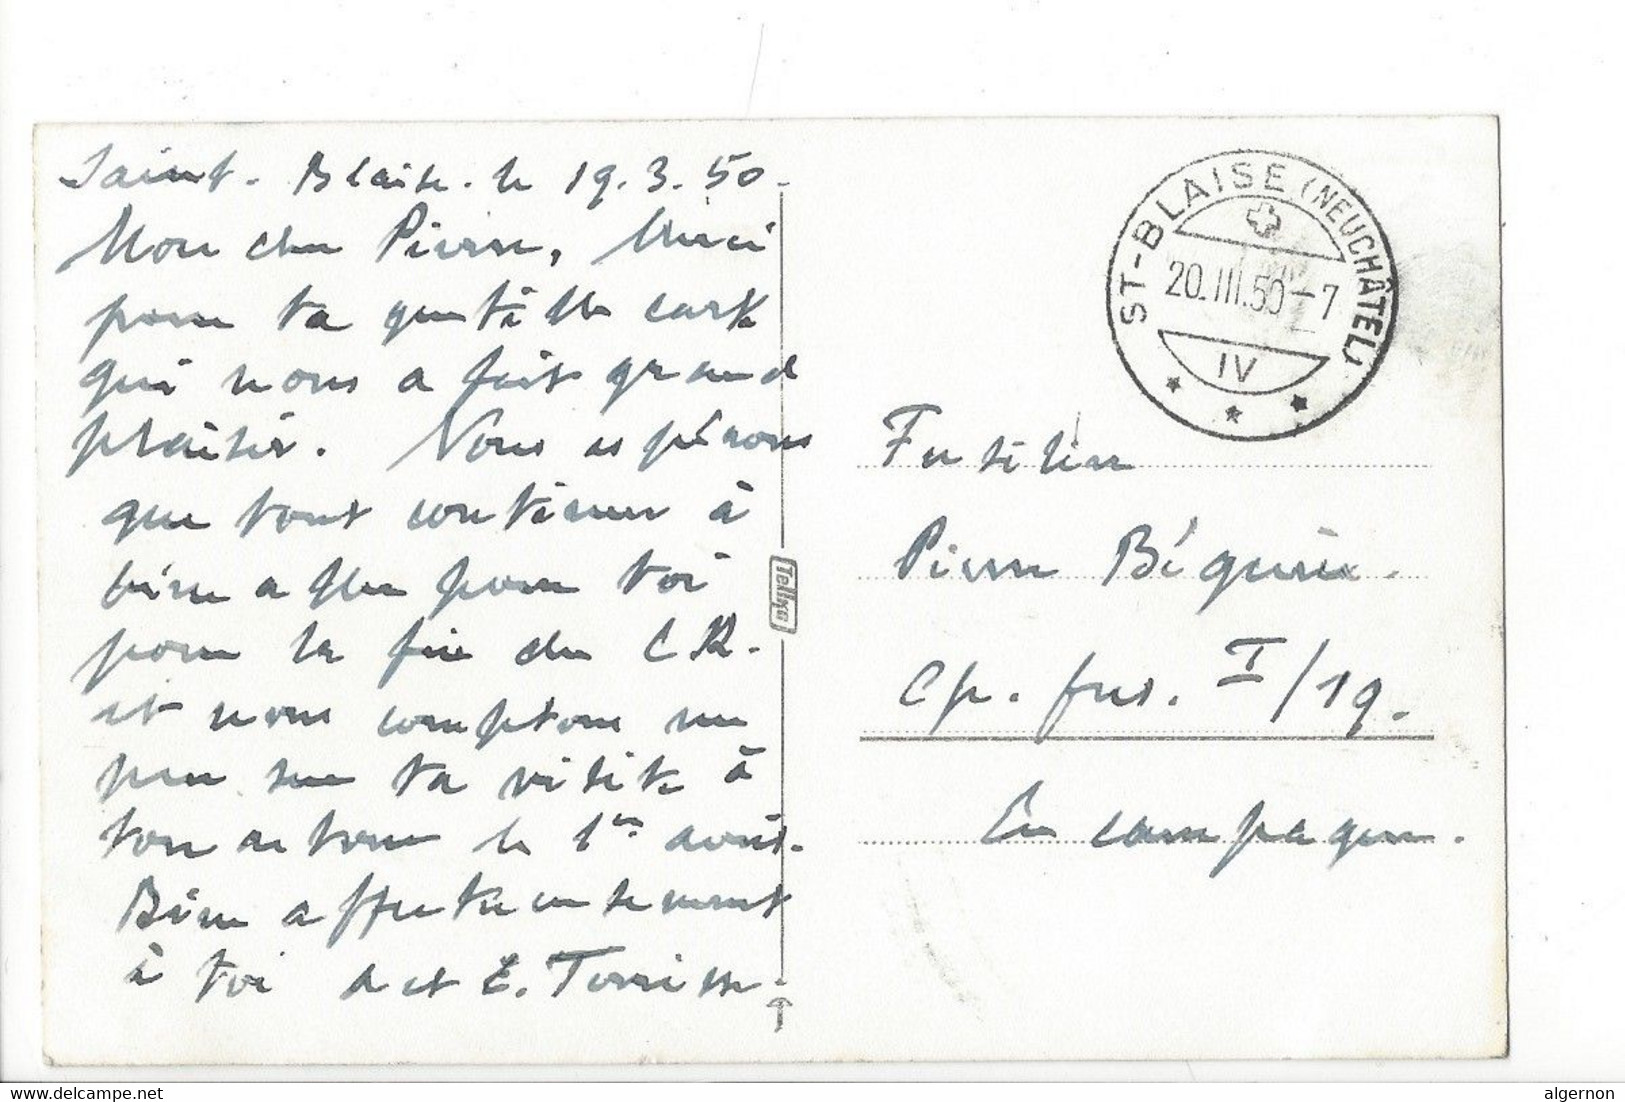 Saint-Blaise. le 19.3.50.
Mon cher Pierre, Merci
pour ta gentille carte
qui nous a fait grand
plaisir. Nous espérons
que tout continue à
bien aller pour toi
pour la fin du C R.
et nous comptons un
peu sur ta visite à
ton retour le 1er avril.
Bien affectueusement
à toi A et E. Terrisse.
Tellko
ST-BLAISE (NEUCHÂTEL)
20.III.50-7
IV
Fusilier
Pierre Béguin.
Cp. fus. I/19.
En campagne.
delcampe.net
algernon